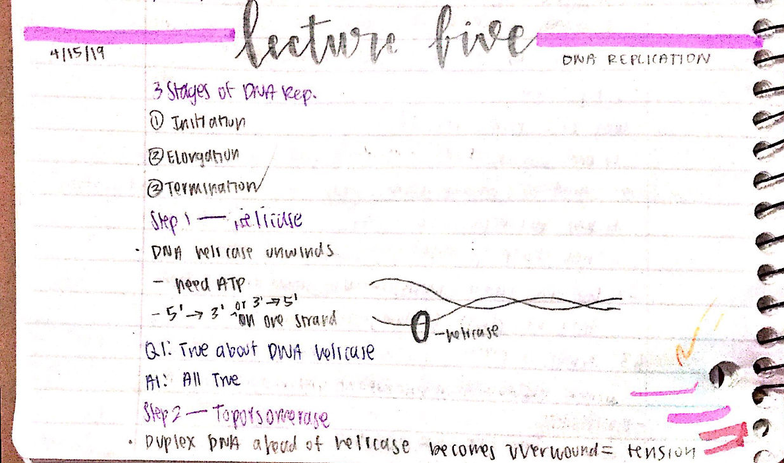 lecture five
4/15/19
DNA REPLICATION
3 Stages of DNA Rep.
① Initiation
② Elongation
③ Termination
Step 1 — Helicase
· DNA helicase unwinds
- need ATP
- 5' → 3' or 3' → 5' on one strand
- helicase
Q1: True about DNA helicase
A1: All True
Step 2 — Topoisomerase
· Duplex DNA ahead of helicase becomes overwound = tension